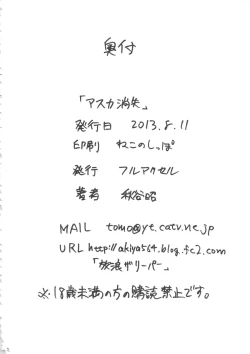 奥付
「アスカ消失」
発行日 2013.8.11
印刷 ねこのしっぽ
発行 フルアクセル
著者 秋谷昭
MAIL tomo@ye.catv.ne.jp
URL http://akiya564.blog.fc2.com
「放浪ザリーパー」
※18歳未満の方の購読禁止です。